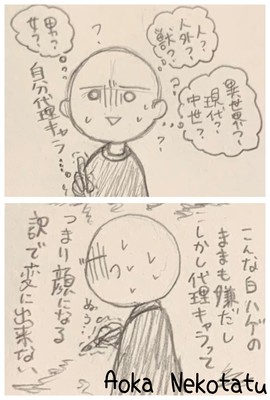 人？
人外？
獣？
男？
女？
異世界？
現代？
中世？
自分代理キャラ…
？
？
？
こんな白ハゲの
ままも嫌だし
しかし代理キャラって
つまり顔になる
訳で変に出来ない
ぬぅ…
Aoka Nekotatu